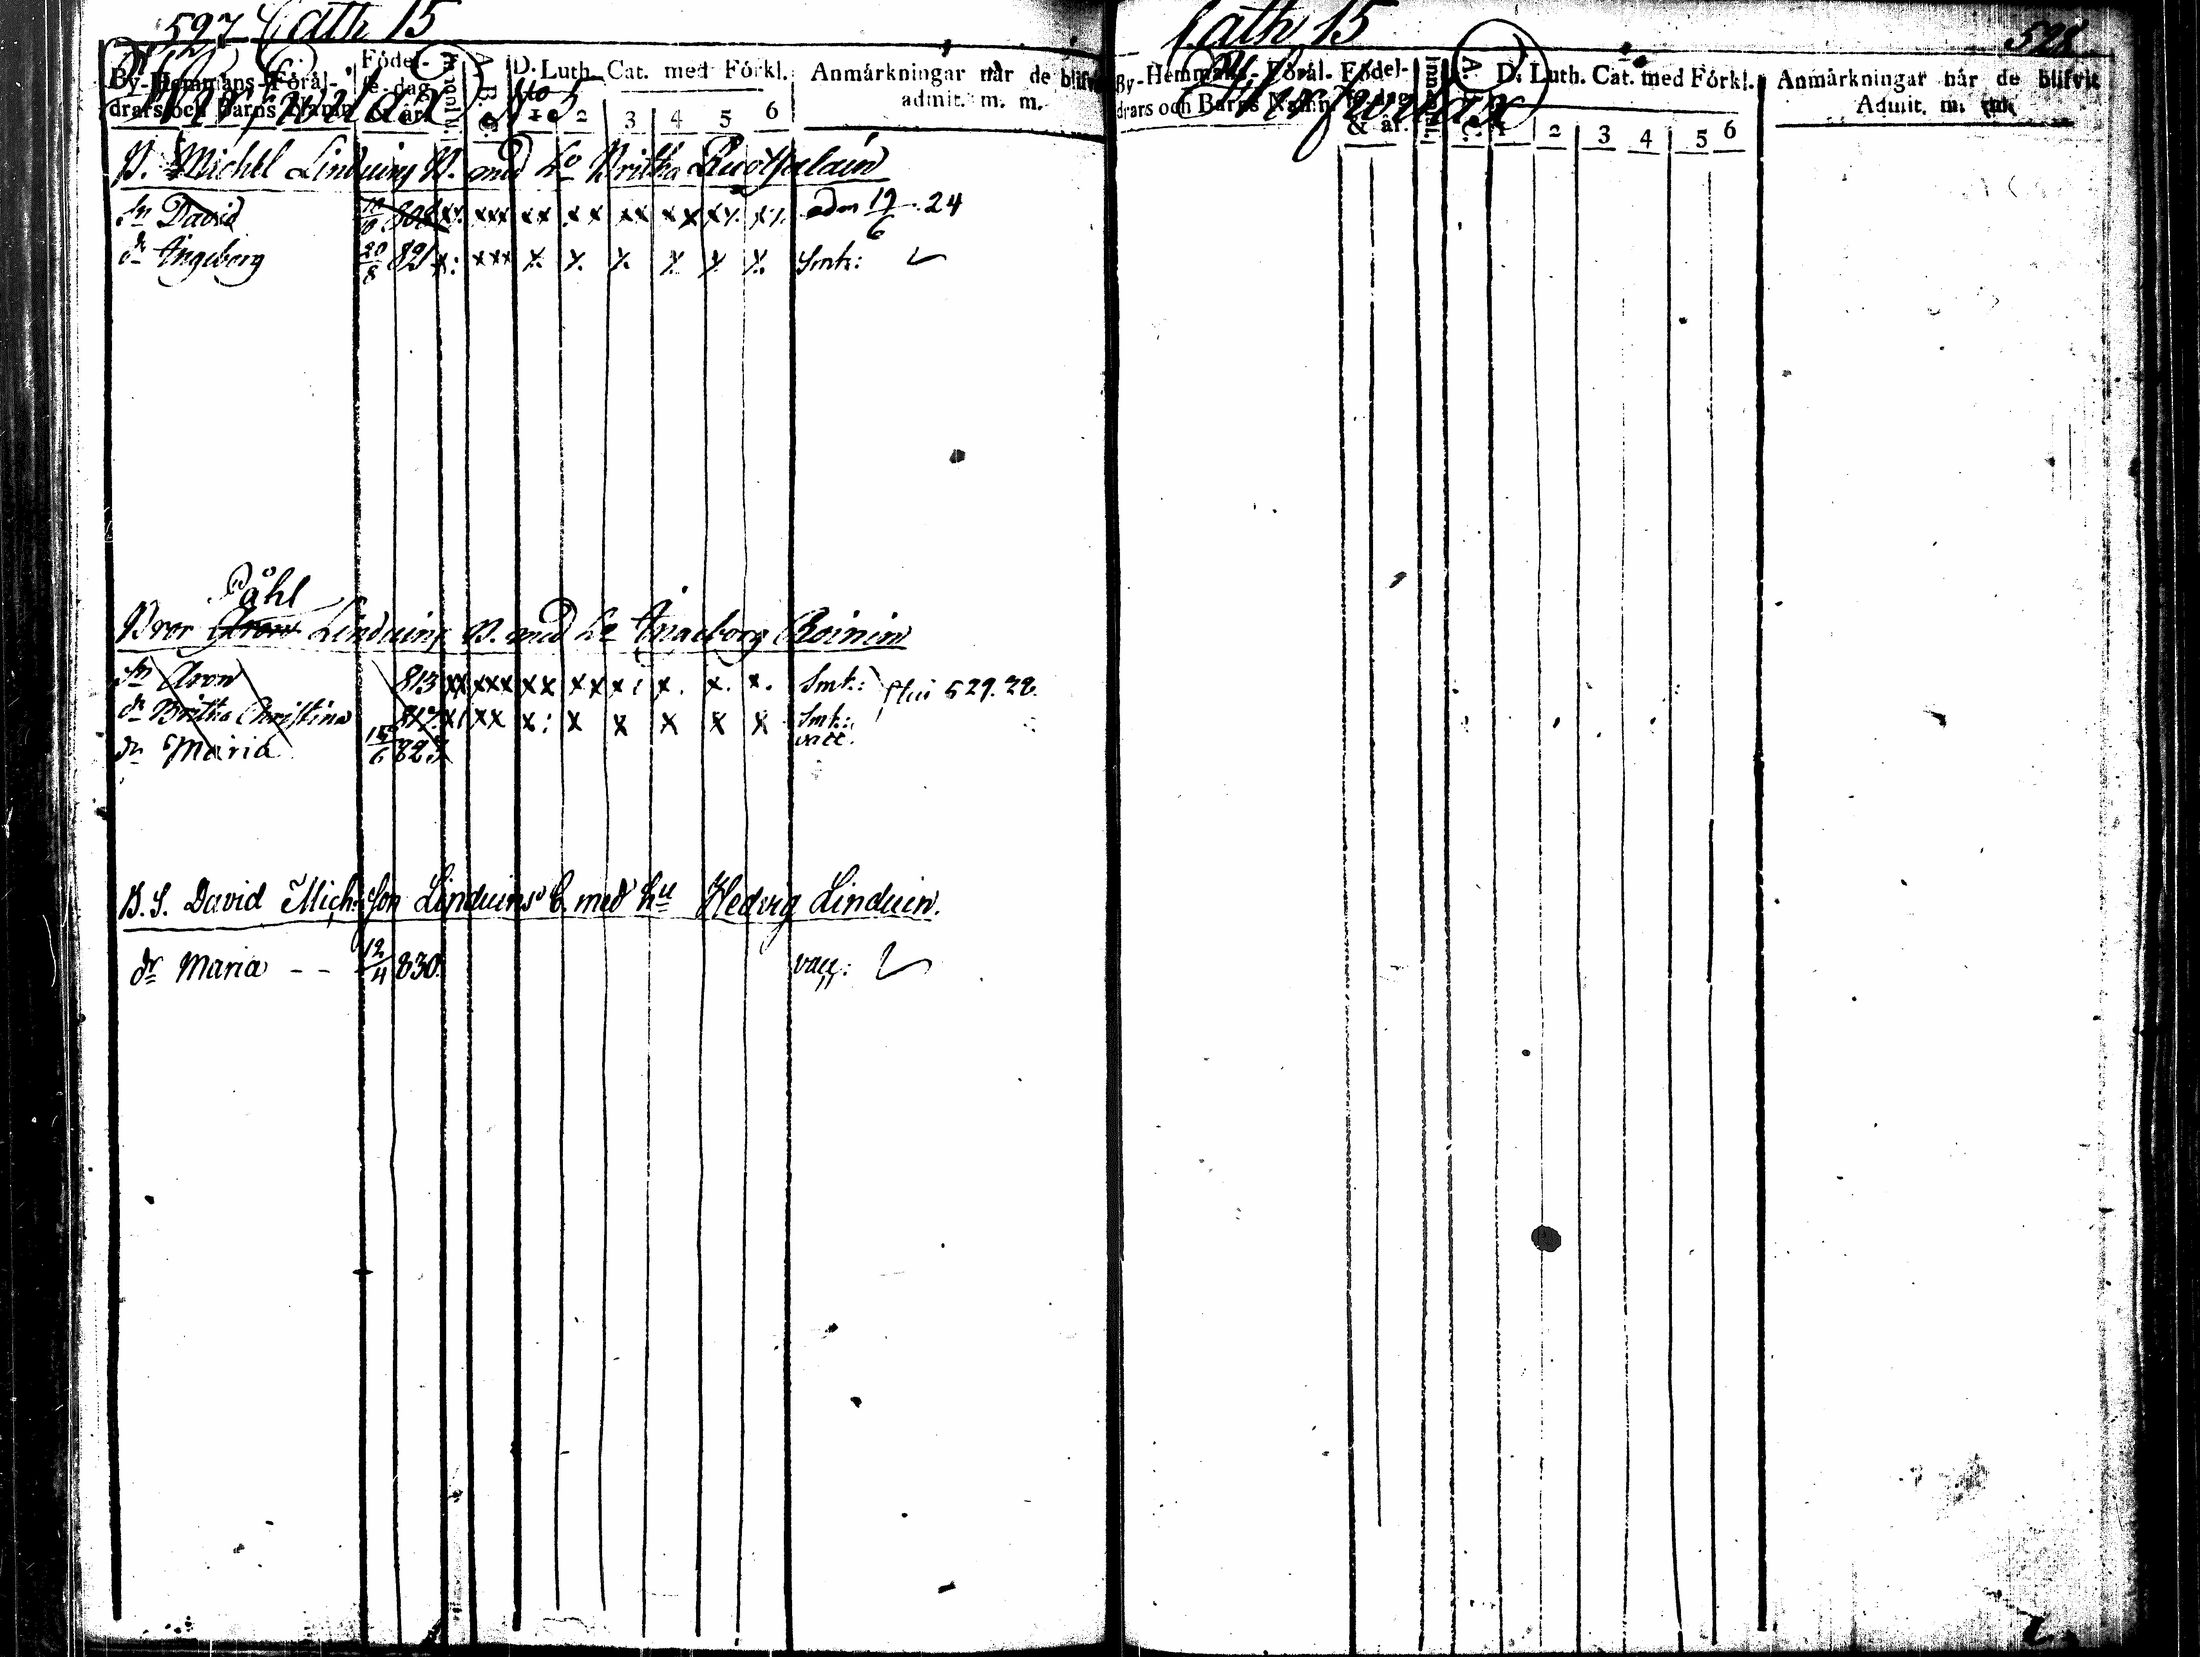 527 Cath 15
By-Hemmans-Föräl-
drars och Barns Namn
Födel-
se-dag
& år.
D. Luth. Cat. med Förkl.
1 2 3 4 5 6
Anmärkningar när de blifvit
admit. m. m.
No 5
B. Michel Linduins B. med Ho Britha
Sn David 808 xx xxx xx xx xx xx xx xx adm 19/6 24
dr Ingeborg 20/8 821 x: xxx x x x x x x Smk:
Påhl
Bror Aron Linduins B. med Ho Ingeborg Roinin
Sn Aron 813 xx xxx xx xx x: x. x. x. Smk: 529. 28.
dr Britha Christina 817 x xx x: x x x x x Smk:
dr Maria 15/6 823 vacc:
B. S. David Mich: Son Linduins B. med hu Hedvig Linduin.
dr Maria - - 12/4 830. vacc:
Cath 15
528
By-Hemmans-Föräl-
drars och Barns Namn
Födel-
& år.
A. B. C.
D. Luth. Cat. med Förkl.
1 2 3 4 5 6
Anmärkningar när de blifvit
Admit. m. m.